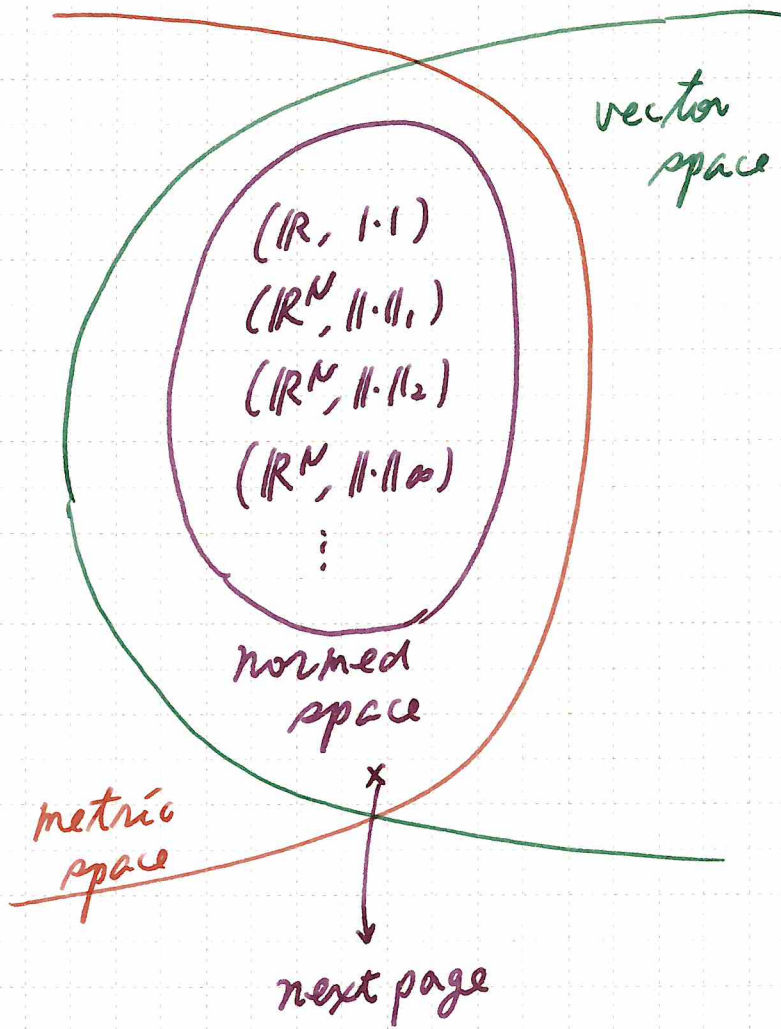 vector
space
(ℝ, |·|)
(ℝᴺ, ‖·‖₁)
(ℝᴺ, ‖·‖₂)
(ℝᴺ, ‖·‖∞)
⋮
normed
space
×
metric
space
next page